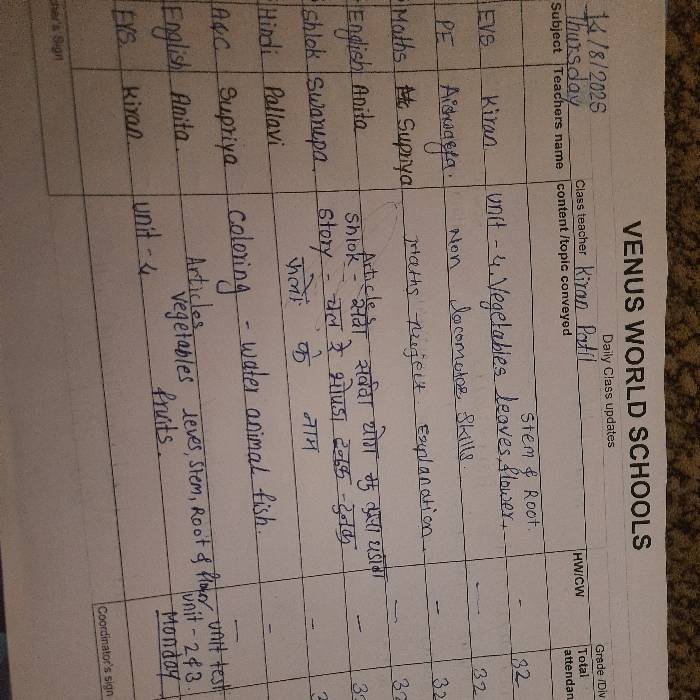 VENUS WORLD SCHOOLS
Daily Class updates
14/8/2025
Thursday
Class teacher Kiran Patil
Grade /Div
Subject Teachers name content /topic conveyed HW/CW Total attendan
EVS Kiran unit - 4, Vegetables leaves, flower, Stem & Root. - 32
PE Non locomotor Skills. - 32
Maths Supriya Maths Explanation. - 32
English Anita Articles -
Shlok Swarupa. Shlok -
Story -
Hindi Pallavi फलों के नाम -
A&C Supriya Coloring - water animal fish. -
English Anita Articles
EVS Kiran unit - 4 Vegetables leves, Stem, Root & flower
fruits.
unit test
unit - 2 & 3
Monday
her's Sign
Coordinator's sign